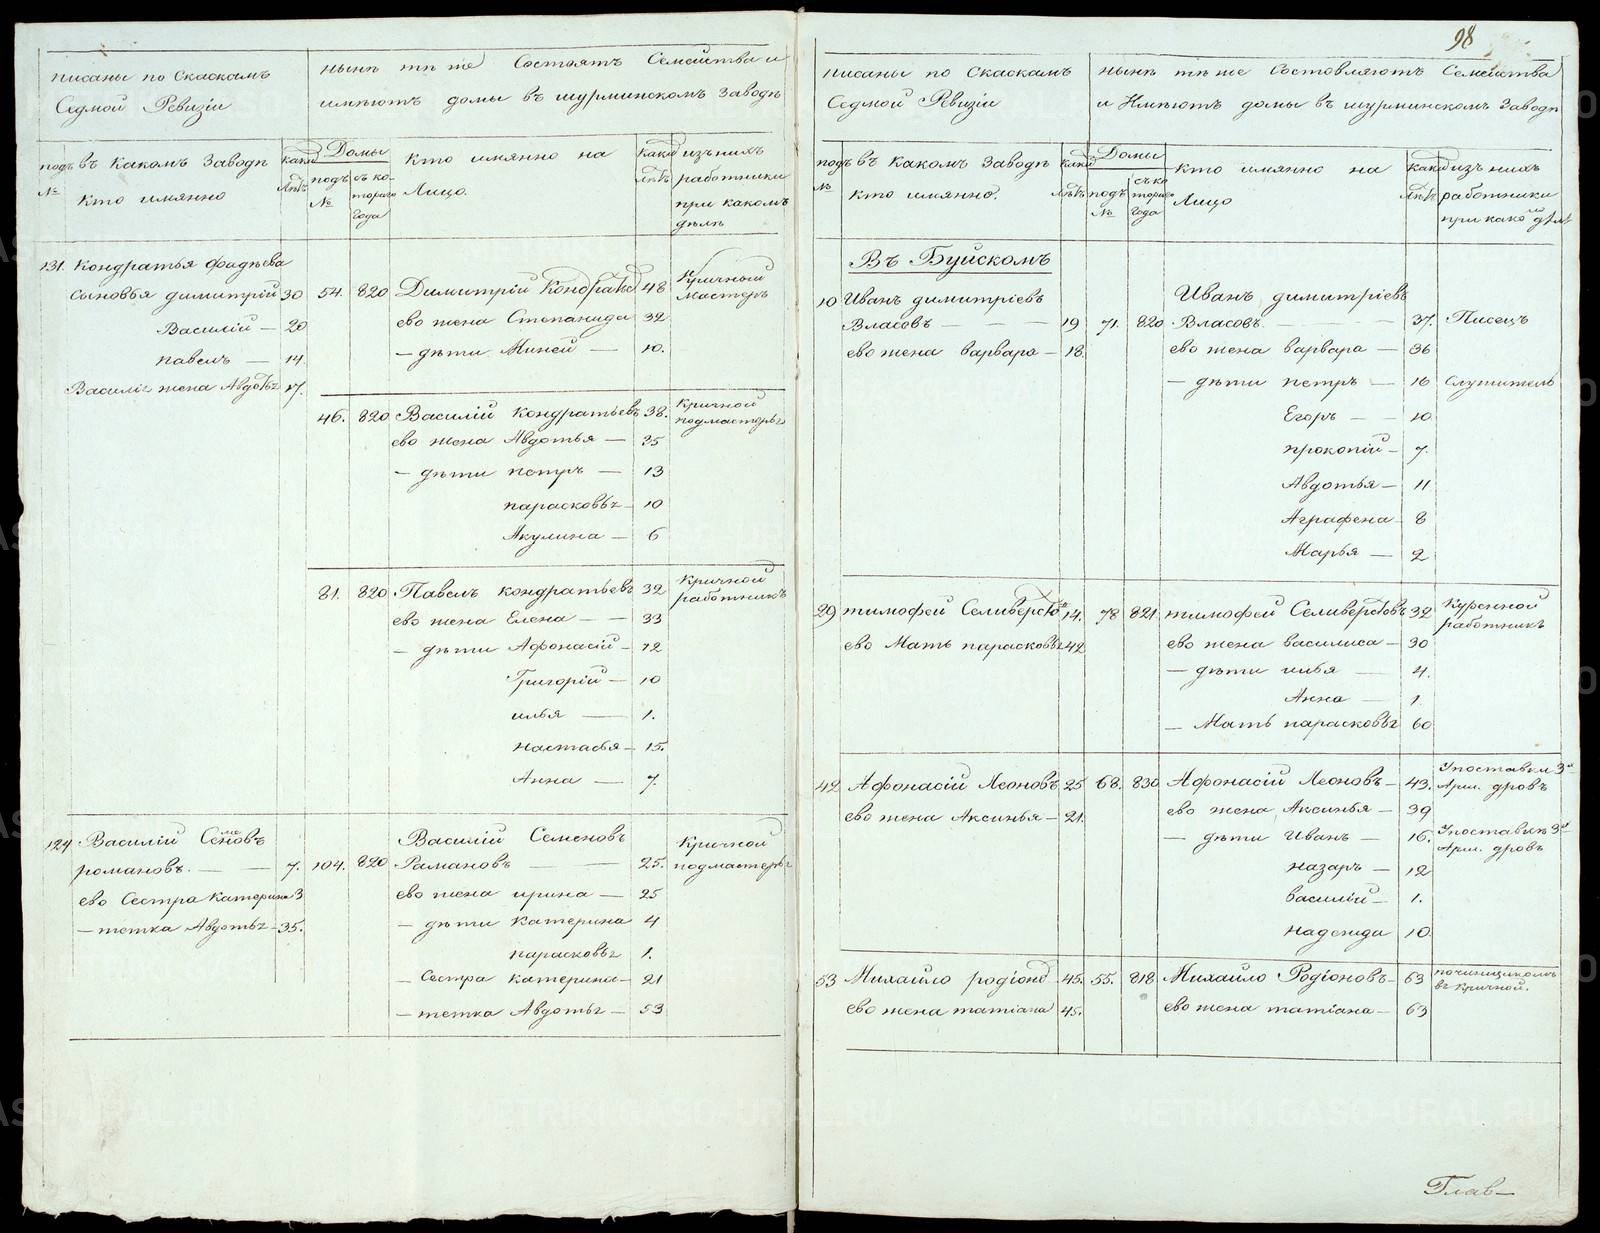 писаны по Скаскамъ
Седмой Ревизіи
нынѣ тѣ же Состоятъ Семейства и
имѣютъ домы въ шурминскомъ Заводѣ
подъ №
въ Какомъ Заводѣ
Кто имянно
каки лѣтъ
Домы
подъ №
съ ко-
тораго
года
Кто имянно на
Лицо
Каки лѣтъ
изъ нихъ
работники
при какомъ
дѣлѣ
131. Кондратья Фадѣева
сыновья димитрій 30 54. 820 Димитрій Кондратьевъ 48 Кричный мастеръ
Василій — 20 ево жена Степанида 32
павелъ — 14. — дѣти Миней — 10.
Василія жена Авдотья 17.
46. 820 Василій кондратьевъ 38. Кричной подмастерья
ево жена Авдотья — 35
— дѣти петръ — 13
парасковья — 10
Акулина — 6
81. 820 Павелъ кондратьевъ 32 Кричной работникъ
ево жена Елена — — 33
— дѣти Афонасій — 12
Григорій — 10
илья — 1.
настасья — 15.
Анна — 7.
124 Василій Семеновъ Василій Семеновъ Кричной
романовъ. — — 7. 104. 820 Рамановъ — — 25. подмастерья
ево Сестра Катерина 3 ево жена ирина — 25
— тетка Авдотья — 35. — дѣти Катерина 4
парасковья 1.
— Сестра катерина — 21
— тетка Авдотья — 53
98
писаны по Скаскамъ
Седмой Ревизіи
нынѣ тѣ же Составляютъ Семейства
и Имѣютъ домы въ шурминскомъ Заводѣ
подъ №
въ Какомъ Заводѣ
Кто имянно.
каки лѣтъ
Домы
подъ №
съ ко
тораго
года
Кто имянно на
Лицо
каки лѣтъ
изъ нихъ
работники
при какомъ дѣлѣ
Въ Буйскомъ
10 Иванъ димитріевъ Иванъ димитріевъ
Власовъ — — — 19 71. 820 Власовъ — — 37. Писецъ
ево жена варвара — 18 ево жена варвара — 36
— дѣти петръ — 16 Служитель
Егоръ — 10
прокопій — 7.
Авдотья — 11
Аграфена — 8
Марья — 2
29 тимофей Селиверстовъ 14. 78 821. тимофей Селиверстовъ 32 Куренной работникъ
ево Мать парасковья 42 ево жена василиса — 30
— дѣти илья — 4.
Анна — 1.
— Мать парасковья 60
42 Афонасій Леоновъ 25 68. 830 Афонасій Леоновъ — 43. Упоставки 3х Арш. дровъ
ево жена Аксинья — 21. ево жена Аксинья — 39
— дѣти Иванъ — 16. Упоставки 3х Арш. дровъ
назаръ — 12
василій — 1.
надежда 10.
53 Михайло родіоновъ 45. 55. 818 Михайло Родіоновъ — 63 починщикомъ въ кричной.
ево жена татіана 45. ево жена татіана — 63
Глав-